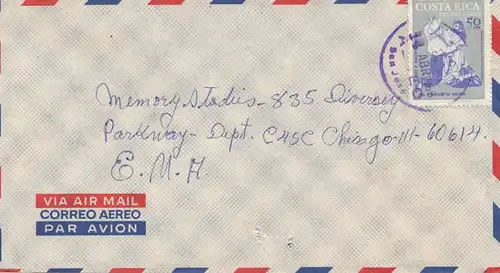 COSTA RICA
50
San Jose
Memory Studies - 835 Diversey
Parkway - Dept. C45C Chicago - Ill - 60614.
E. M. A
VIA AIR MAIL
CORREO AEREO
PAR AVION